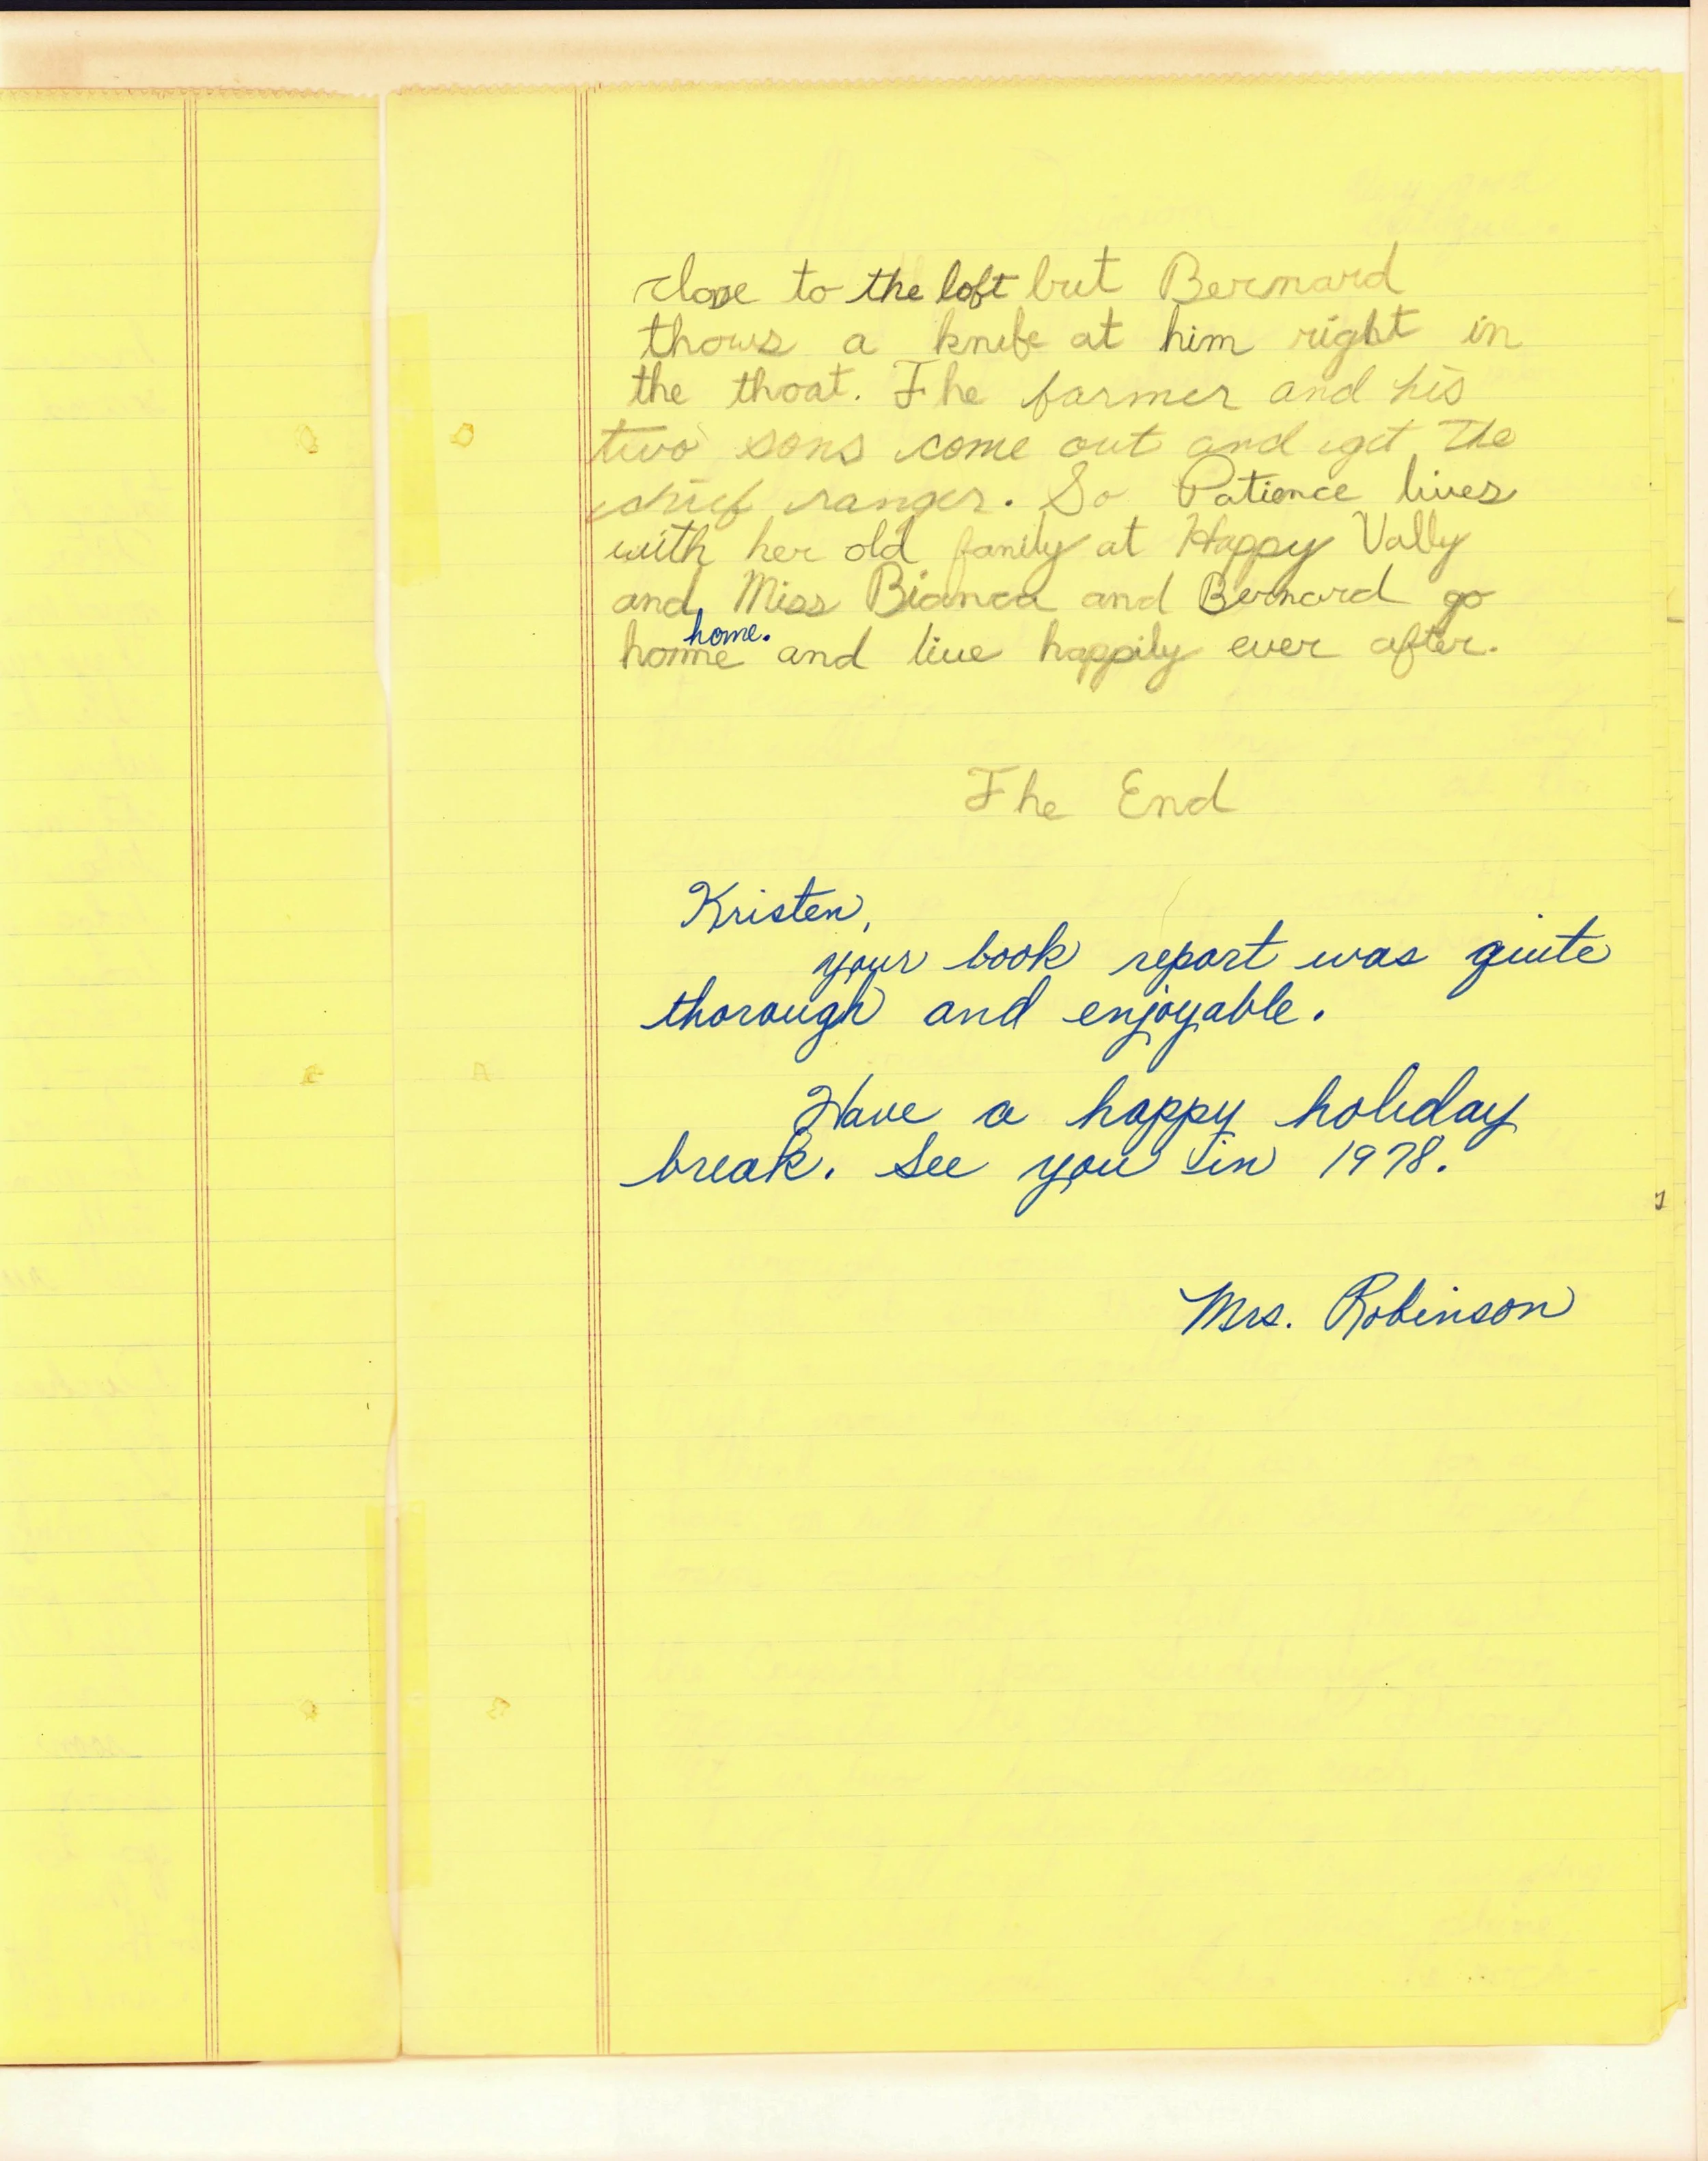 close to the loft but Bernard
thows a knife at him right in
the thoat. The farmer and his
two sons come out and get the
chief ranger. So Patience lives
with her old family at Happy Vally
and Miss Bianca and Bernard go
home.
homme and live happily ever after.
The End
Kristen,
your book report was quite
thorough and enjoyable.
Have a happy holiday
break. See you in 1978.
Mrs. Robinson